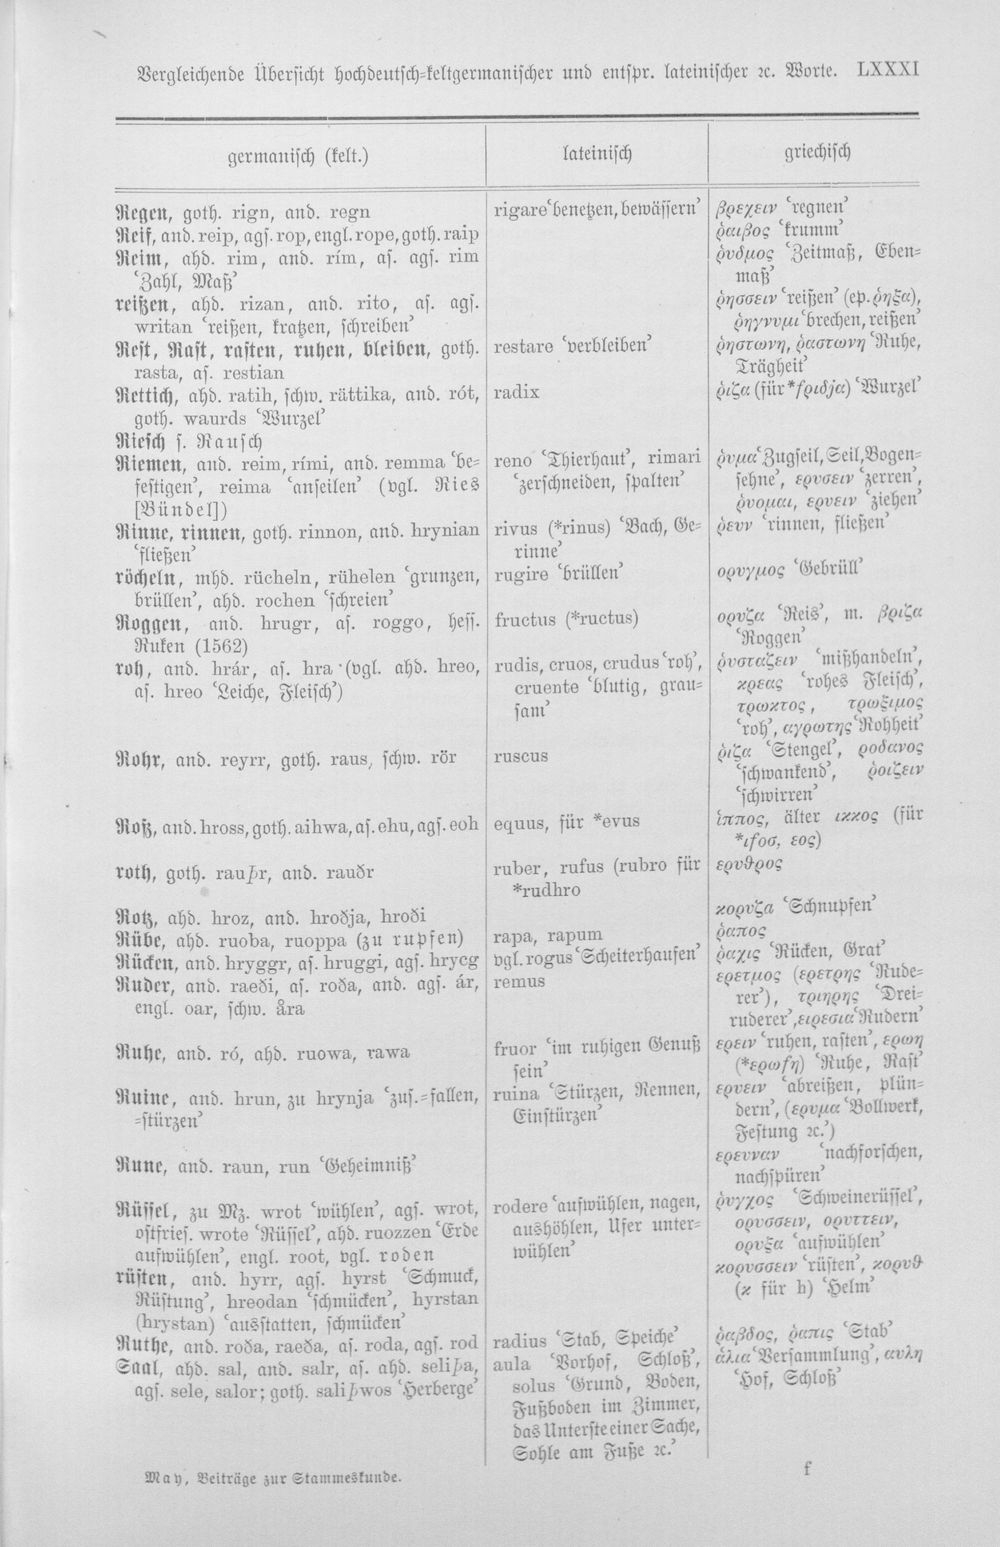 Vergleichende Übersicht hochdeutsch-keltgermanischer und entspr. lateinischer ꝛc. Worte. LXXXI
germanisch (kelt.)
lateinisch
griechisch
Regen, goth. rign, and. regn
Reif, and. reip, ags. rop, engl. rope, goth. raip
Reim, ahd. rim, and. rím, as. ags. rim
‘Zahl, Maß’
reißen, ahd. rizan, and. rito, as. ags.
writan ‘reißen, kratzen, schreiben’
Rest, Rast, rasten, ruhen, bleiben, goth.
rasta, as. restian
Rettich, ahd. ratih, schw. rättika, and. rót,
goth. waurds ‘Wurzel’
Riesch s. Rausch
Riemen, and. reim, rími, and. remma ‘be-
festigen’, reima ‘anseilen’ (vgl. Ries
[Bündel])
Rinne, rinnen, goth. rinnon, and. hrynian
‘fließen’
röcheln, mhd. rücheln, rühelen ‘grunzen,
brüllen’, ahd. rochen ‘schreien’
Roggen, and. hrugr, as. roggo, hess.
Ruken (1562)
roh, and. hrár, as. hra (vgl. ahd. hreo,
as. hreo ‘Leiche, Fleisch’)
Rohr, and. reyrr, goth. raus, schw. rör
Roß, and. hross, goth. aihwa, as. ehu, ags. eoh
roth, goth. rauþr, and. rauðr
Rotz, ahd. hroz, and. hroðja, hroði
Rübe, ahd. ruoba, ruoppa (zu rupfen)
Rücken, and. hryggr, as. hruggi, ags. hrycg
Ruder, and. raeði, as. roða, and. ags. ár,
engl. oar, schw. åra
Ruhe, and. ró, ahd. ruowa, rawa
Ruine, and. hrun, zu hrynja ‘zus.-fallen,
-stürzen’
Rune, and. raun, run ‘Geheimniß’
Rüssel, zu Mz. wrot ‘wühlen’, ags. wrot,
ostfries. wrote ‘Rüssel’, ahd. ruozzen ‘Erde
aufwühlen’, engl. root, vgl. roden
rüsten, and. hyrr, ags. hyrst ‘Schmuck,
Rüstung’, hreodan ‘schmücken’, hyrstan
(hrystan) ‘ausstatten, schmücken’
Ruthe, and. roða, raeða, as. roda, ags. rod
Saal, ahd. sal, and. salr, as. ahd. seliþa,
ags. sele, salor; goth. saliþwos ‘Herberge’
rigare ‘benetzen, bewässern’
restare ‘verbleiben’
radix
reno ‘Thierhaut’, rimari
‘zerschneiden, spalten’
rivus (*rinus) ‘Bach, Ge-
rinne’
rugire ‘brüllen’
fructus (*ructus)
rudis, cruos, crudus ‘roh’,
cruente ‘blutig, grau-
sam’
ruscus
equus, für *evus
ruber, rufus (rubro für
*rudhro
rapa, rapum
vgl. rogus ‘Scheiterhaufen’
remus
fruor ‘im ruhigen Genuß
sein’
ruina ‘Stürzen, Rennen,
Einstürzen’
rodere ‘aufwühlen, nagen,
aushöhlen, Ufer unter-
wühlen’
radius ‘Stab, Speiche’
aula ‘Vorhof, Schloß’,
solus ‘Grund, Boden,
Fußboden im Zimmer,
das Unterste einer Sache,
Sohle am Fuße ꝛc.’
βρεχειν ‘regnen’
ῥαιβος ‘krumm’
ῥυδμος ‘Zeitmaß, Eben-
maß’
ῥησσειν ‘reißen’ (ep. ῥηξα),
ῥηγνυμι ‘brechen, reißen’
ῥηστωνη, ῥαστωνη ‘Ruhe,
Trägheit’
ῥιζα (für *ϝριδja) ‘Wurzel’
ῥυμα ‘Zugseil, Seil, Bogen-
sehne’, ερυσειν ‘zerren’,
ῥυομαι, ερυειν ‘ziehen’
ῥευν ‘rinnen, fließen’
ορυγμος ‘Gebrüll’
ορυζα ‘Reis’, m. βριζα
‘Roggen’
ῥυσταζειν ‘mißhandeln’,
κρεας ‘rohes Fleisch’,
τρωκτος, τρωξιμος
‘roh’, αγρωτης ‘Rohheit’
ῥιζα ‘Stengel’, ροδανος
‘schwankend’, ῥοιζειν
‘schwirren’
ἱππος, älter ικκος (für
*ιϝος, εος)
ερυθρος
κορυζα ‘Schnupfen’
ῥαπος
ῥαχις ‘Rücken, Grat’
ερετμος (ερετρης ‘Rude-
rer’), τριηρης ‘Drei-
ruderer’, ειρεσια ‘Rudern’
ερειν ‘ruhen, rasten’, ερωη
(*ερωϝη) ‘Ruhe, Rast’
ερυειν ‘abreißen, plün-
dern’, (ερυμα ‘Bollwerk,
Festung ꝛc.’)
ερευναν ‘nachforschen,
nachspüren’
ῥυγχος ‘Schweinerüssel’,
ορυσσειν, ορυττειν,
ορυξα ‘aufwühlen’
κορυσσειν ‘rüsten’, κορυθ
(κ für h) ‘Helm’
ῥαβδος, ῥαπις ‘Stab’
ἁλια ‘Versammlung’, αυλη
‘Hof, Schloß’
May, Beiträge zur Stammeskunde.
f